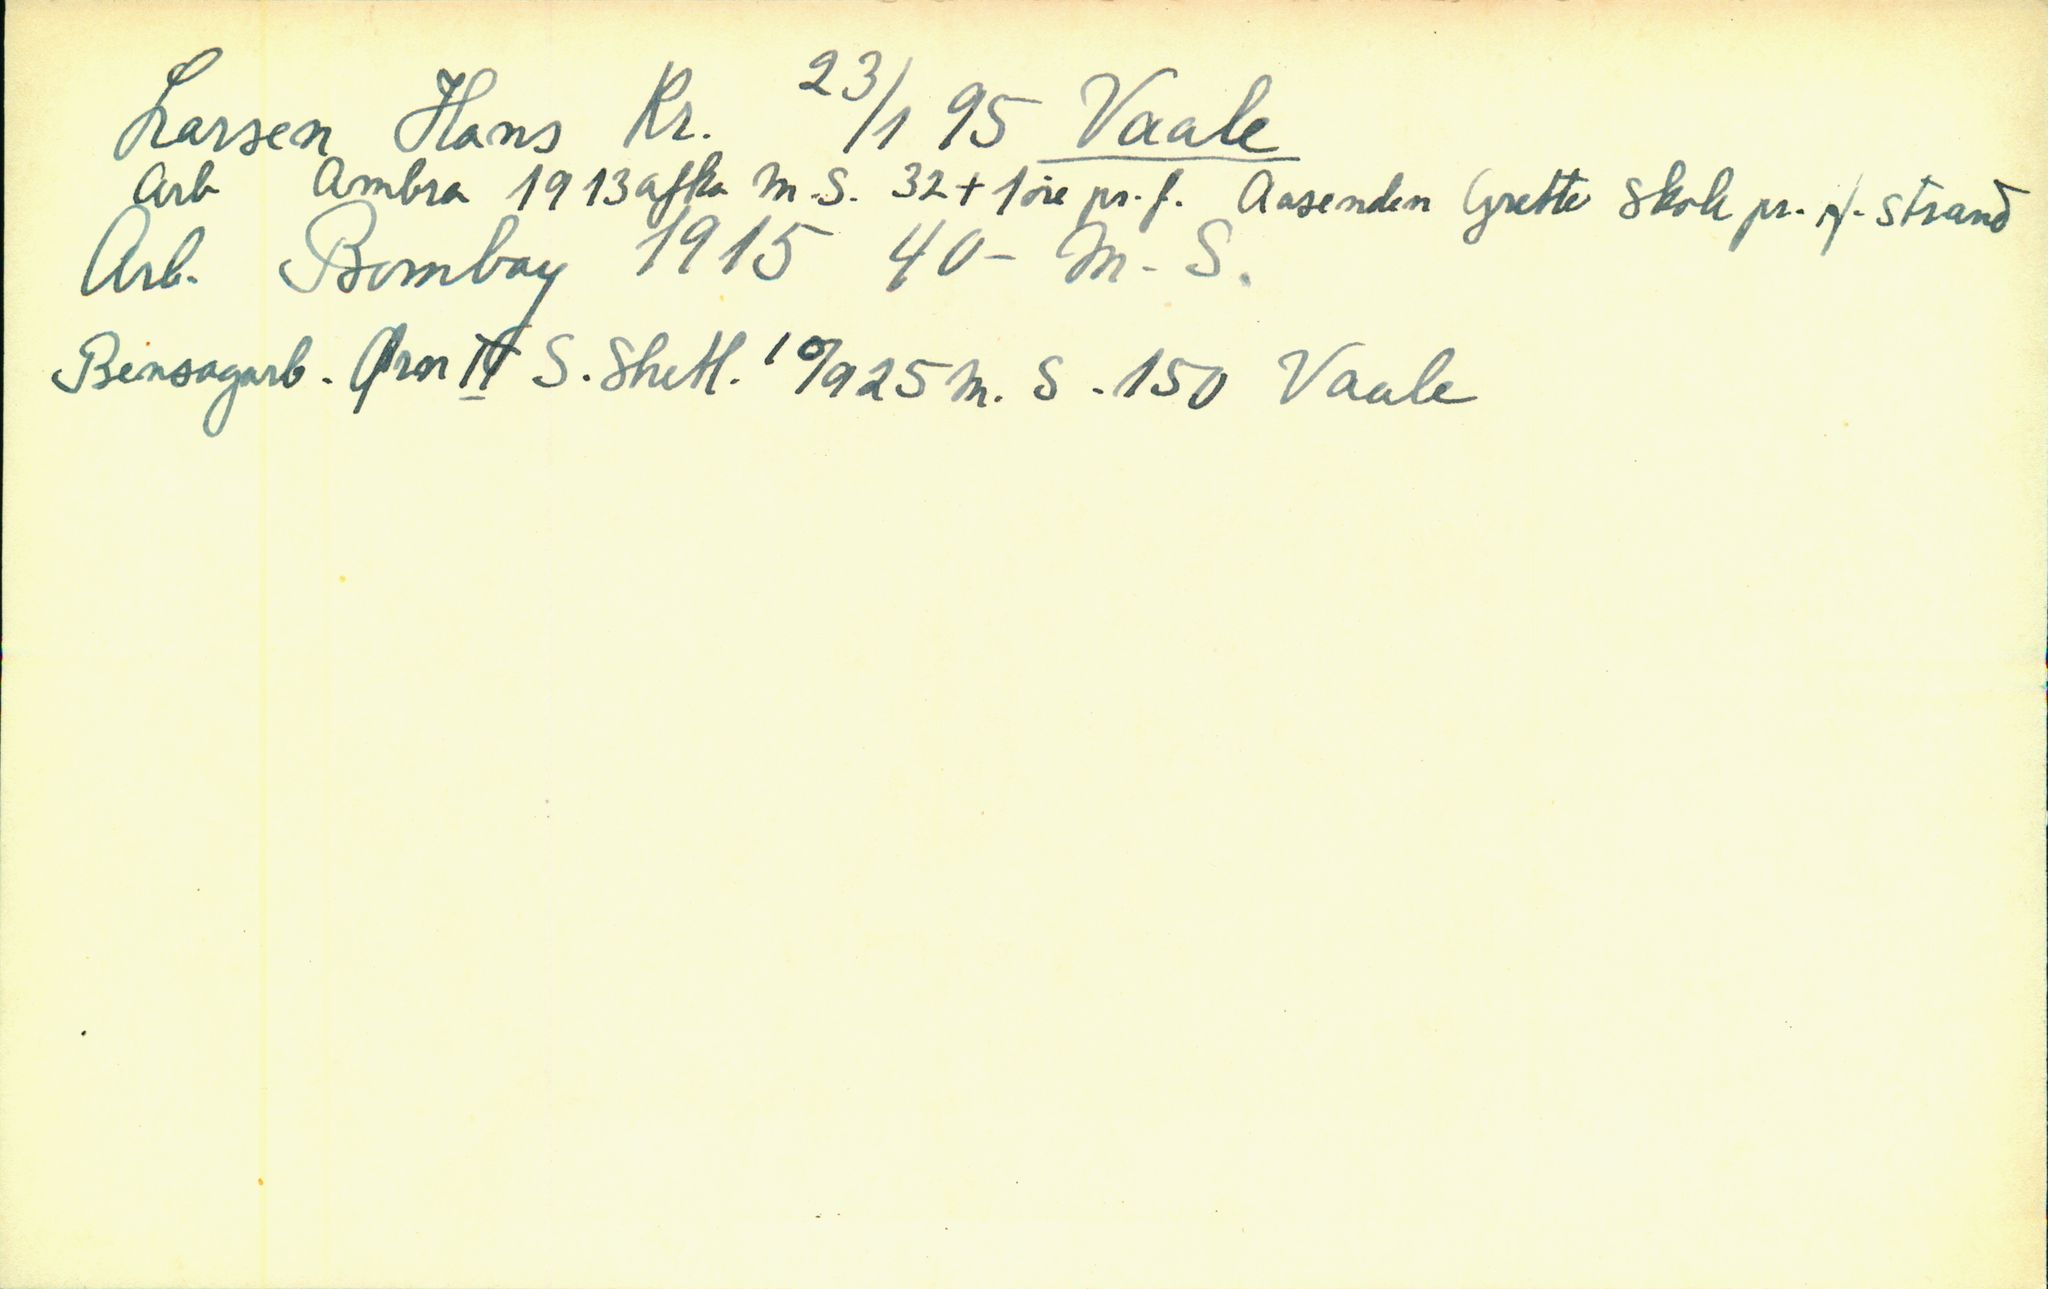 Larsen Hans Kr. 23/1 95 Vaale
Arb Ambra 1913 afka M.S. 32 + 1 øre pr. f. Aasenden Grette Skole pr. strand
Arb. Bombay 1915 40- M-S.
Bensagarb. Ørn II S. Shetl. 10/9 25 M. S. 150 Vaale